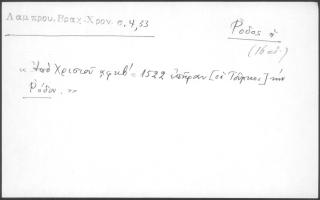 Λαμπρου, Βραχ. Χρον. σ. 4, 53
Ῥόδος ἡ
(16 αἰ.)
« Ἀπὸ Χριστοῦ ͵αφκβʹ = 1522 ἐπῆραν [οἱ Τοῦρκοι] τὴν
Ῥόδον. »